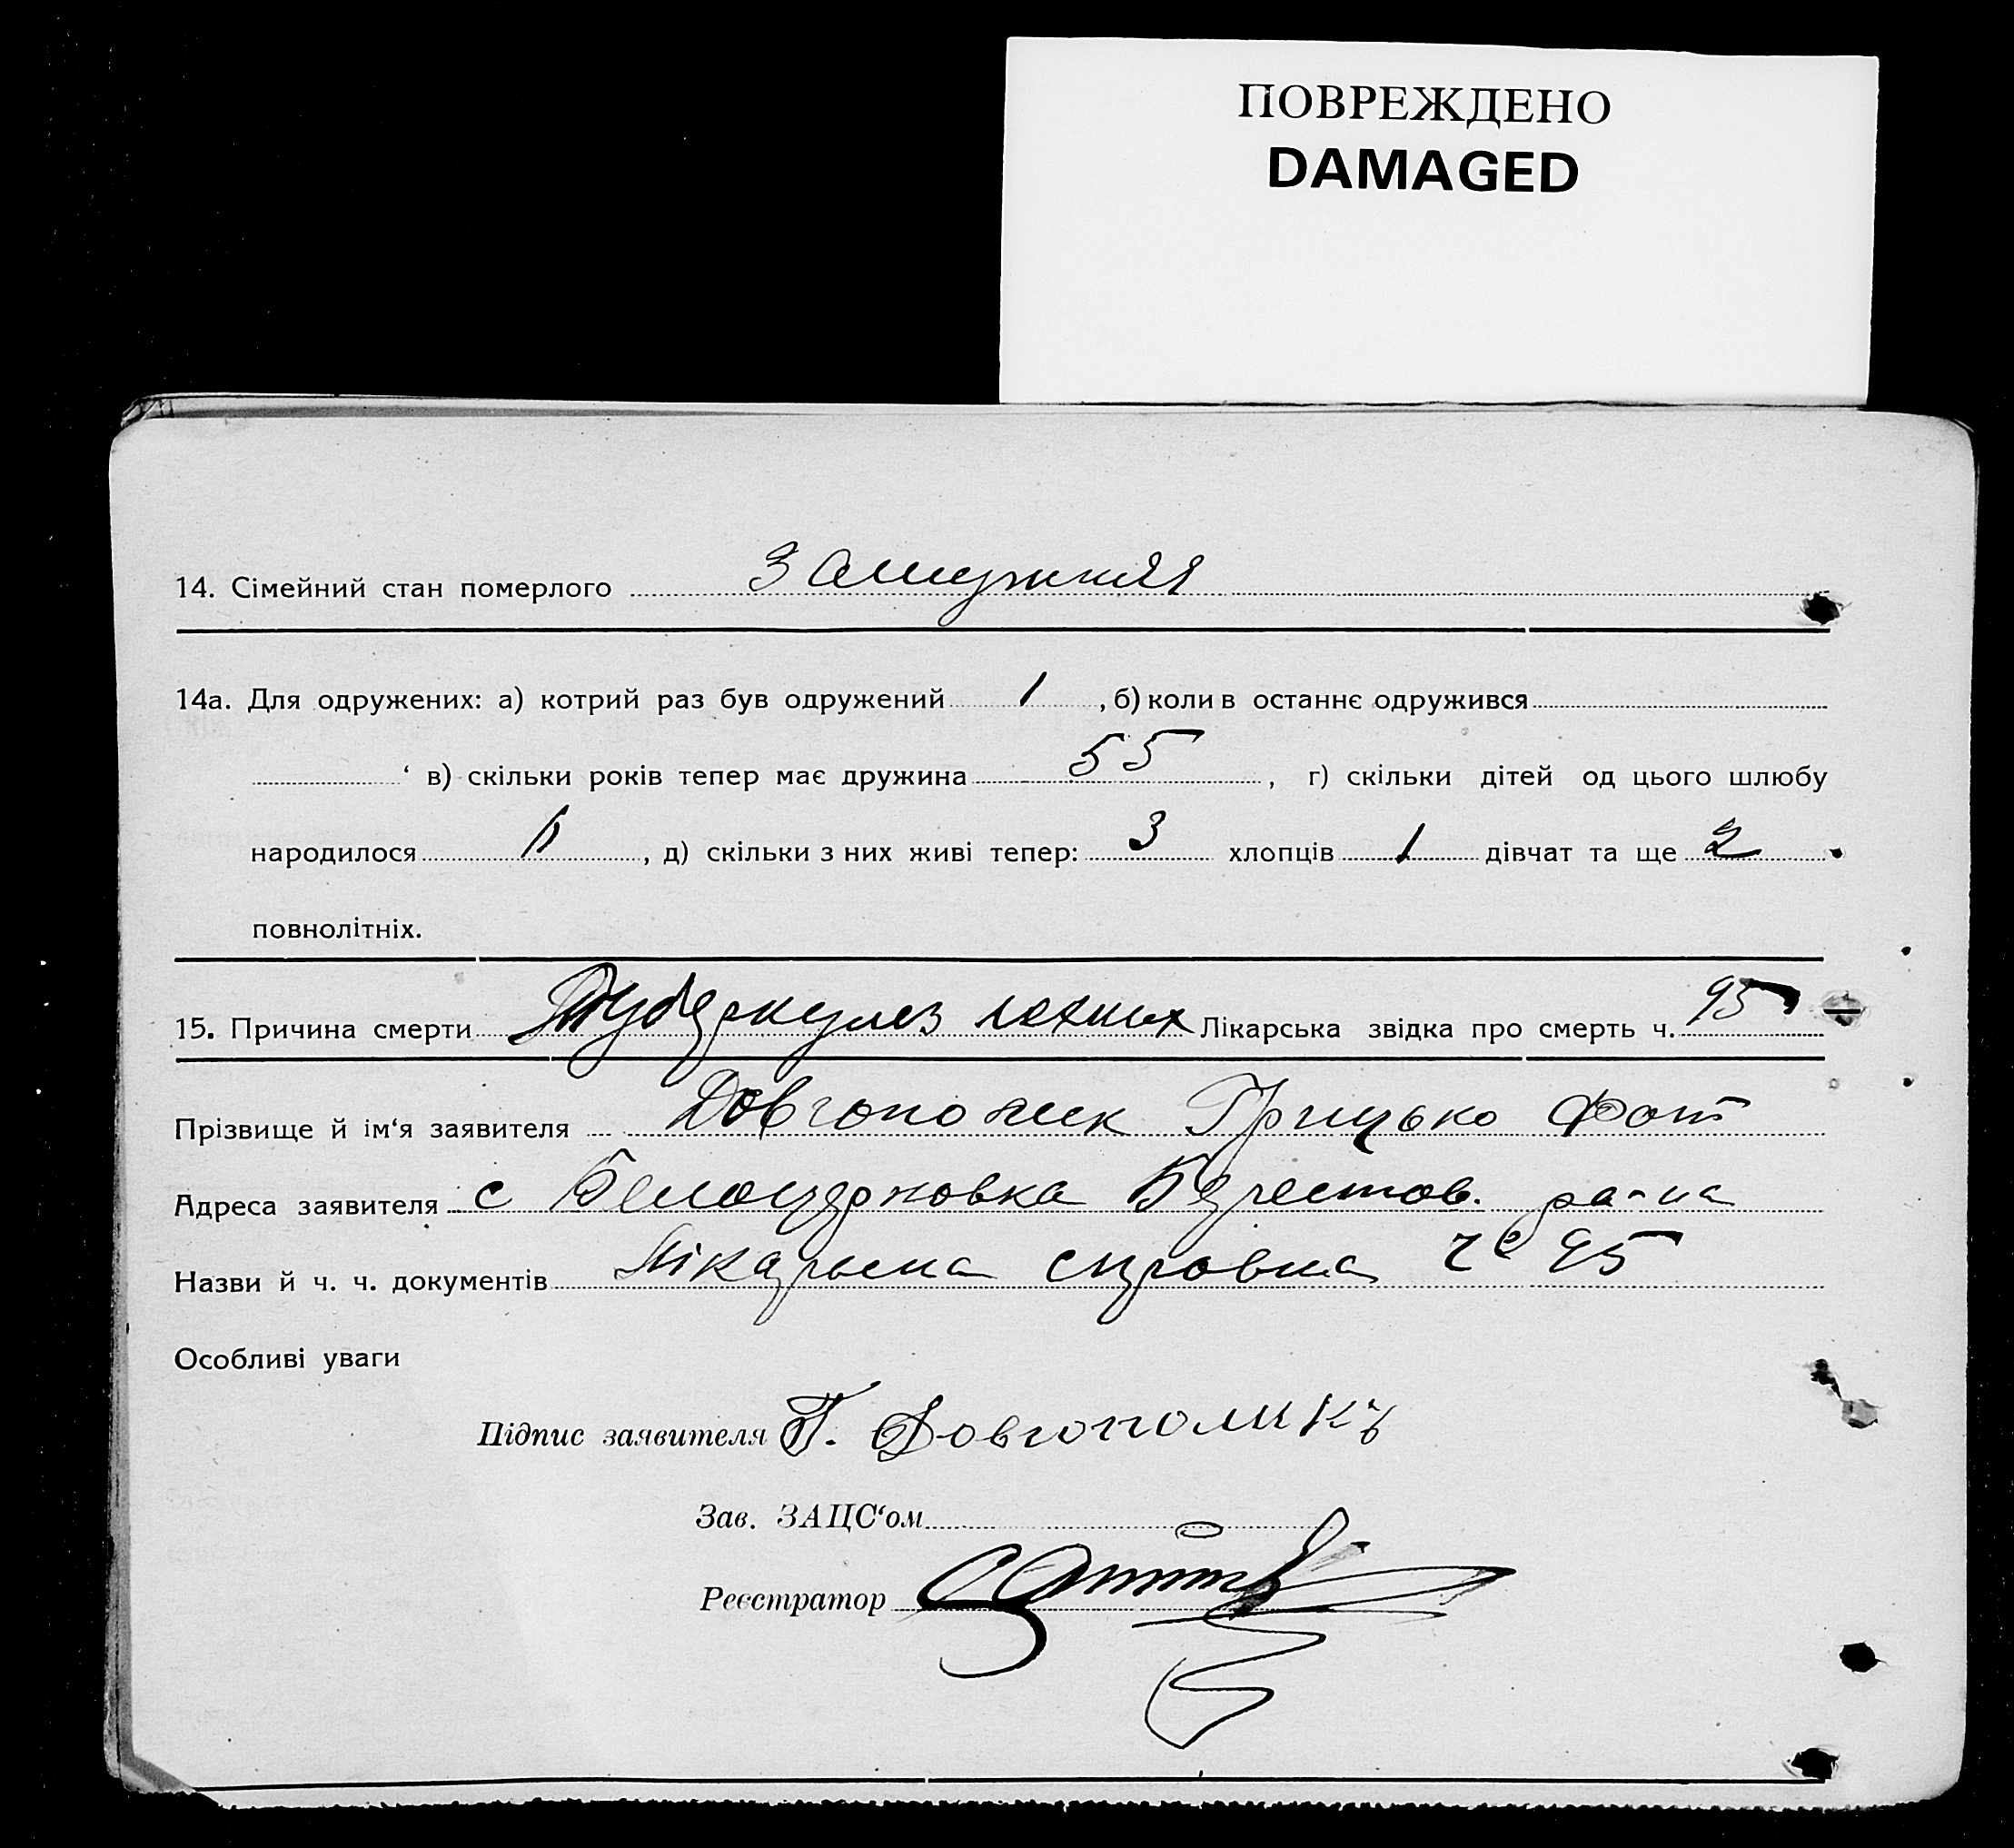 ПОВРЕЖДЕНО
DAMAGED
14. Сімейний стан померлого Замужняя
14а. Для одружених: а) котрий раз був одружений 1, б) коли в останнє одружився
в) скільки років тепер має дружина 55, г) скільки дітей од цього шлюбу
народилося, д) скільки з них живі тепер: 3 хлопців 1 дівчат та ще 2
повнолітніх.
15. Причина смерти Туберкулез легких Лікарська звідка про смерть ч. 95
Прізвище й ім‘я заявителя Довгополик Грицько Фот
Адреса заявителя с Белоцерковка Берестов. ра-на
Назви й ч. ч. документів Лікарська справка 95
Особливі уваги
Підпис заявителя Г. Довгополикъ
Зав. ЗАЦС‘ом
Реєстратор